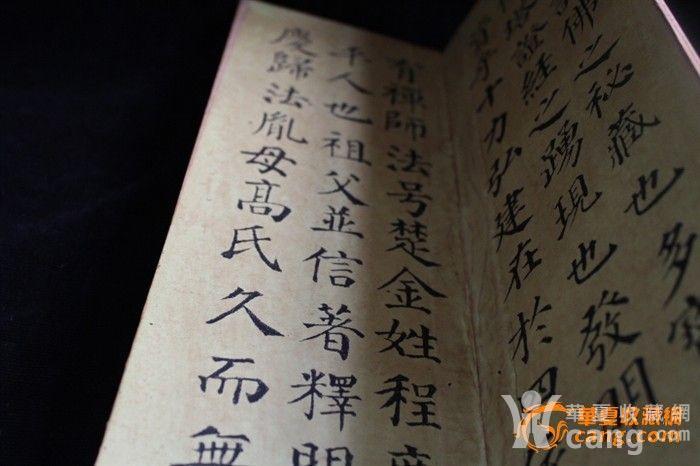 佛之秘藏也多
塔證經之踴現也發明
乎十力弘建在於
有禪師法号楚金姓程
平人也祖父並信著釋
慶歸法胤母髙氏久而無
華夏收藏網
cang.com
華夏收藏網
cang.com